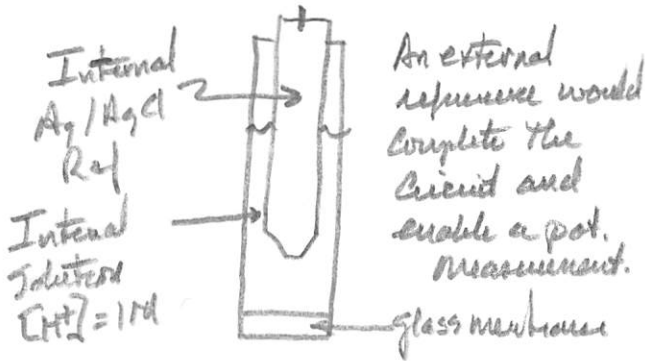 Internal
Ag/AgCl
Ref
Internal
Solution
[H+] = 1M
An external
reference would
complete the
circuit and
enable a pot.
measurement.
glass membrane